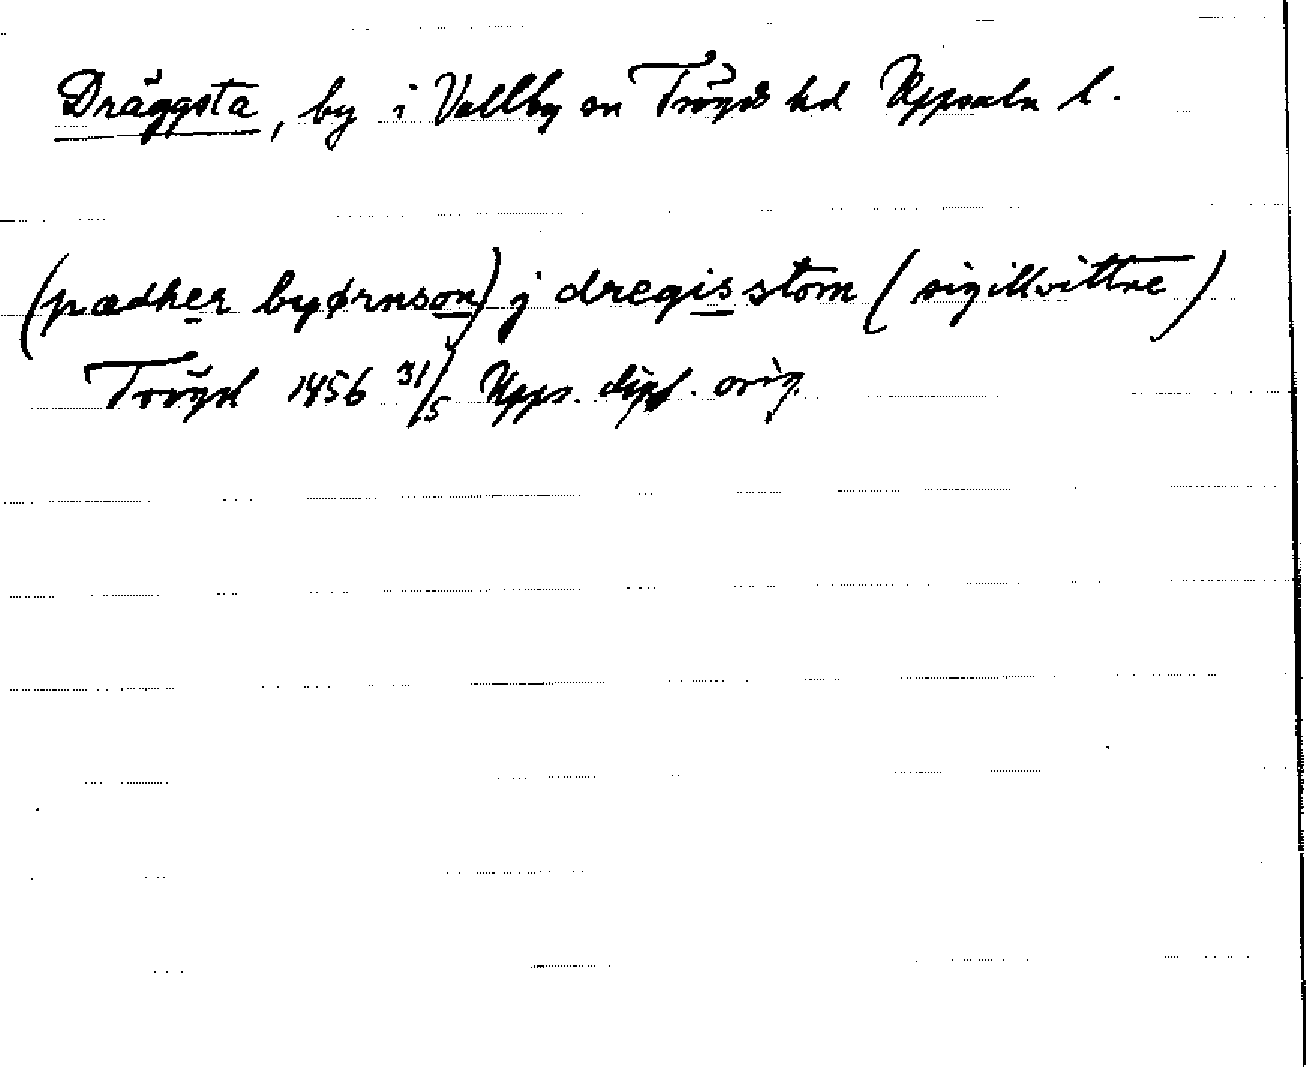 Dräggsta, by i Vallby sn Trögds hd Uppsala l.
(pædher byørnson) j dregisstom (sigillvittne)
Trögd 1456 31/5 Upps. dipl. orig.